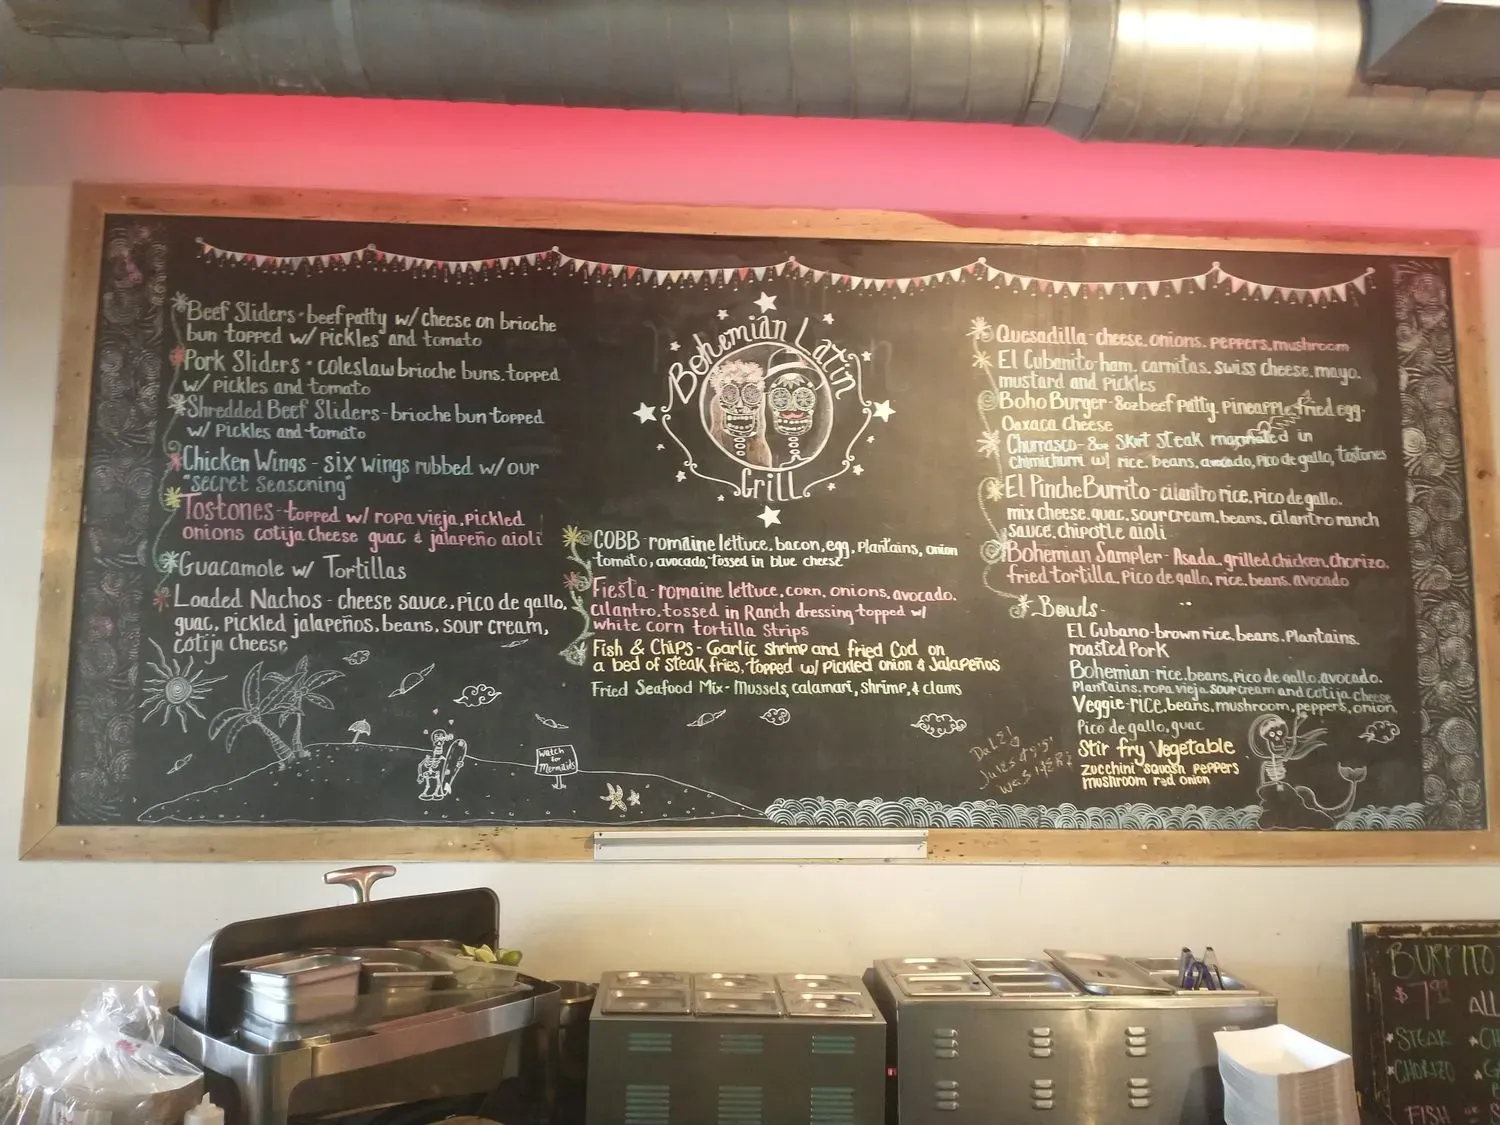 *Beef Sliders - beef patty w/ cheese on brioche
bun topped w/ pickles and tomato
*Pork Sliders - coleslaw brioche buns, topped
w/ pickles and tomato
*Shredded Beef Sliders - brioche bun topped
w/ Pickles and tomato
*Chicken Wings - six wings rubbed w/ our
"secret seasoning"
*Tostones - topped w/ ropa vieja, pickled
onions cotija cheese guac & jalapeño aioli
*Guacamole w/ Tortillas
*Loaded Nachos - cheese sauce, pico de gallo,
guac, pickled jalapeños, beans, sour cream,
cotija cheese
Watch
for
Mermaids
Bohemian Latin
Grill
COBB - romaine lettuce, bacon, egg, Plantains, onion
tomato, avocado, tossed in blue cheese
Fiesta - romaine lettuce, corn, onions, avocado,
cilantro, tossed in Ranch dressing topped w/
white corn tortilla strips
Fish & Chips - Garlic shrimp and fried Cod on
a bed of steak fries, topped w/ Pickled onion & Jalapeños
Fried Seafood Mix - Mussels, calamari, shrimp, & clams
Quesadilla - cheese, onions, peppers, mushroom
El Cubanito - ham, carnitas, swiss cheese, mayo,
mustard and pickles
Boho Burger - 8oz beef patty, pineapple, fried egg,
Oaxaca cheese
Churrasco - 8oz Skirt Steak marinated in
chimichurri w/ rice, beans, avocado, Pico de gallo, tostones
El Pinche Burrito - cilantro rice, pico de gallo,
mix cheese, guac, sour cream, beans, cilantro ranch
sauce, chipotle aioli
Bohemian Sampler - Asada, grilled chicken, chorizo,
fried tortilla, Pico de gallo, rice, beans, avocado
Bowls -
El Cubano - brown rice, beans, Plantains,
roasted Pork
Bohemian - rice, beans, Pico de gallo, avocado,
Plantains, ropa vieja sour cream and cotija cheese
Veggie - rice, beans, mushroom, peppers, onion,
Pico de gallo, guac
Stir fry Vegetable
zucchini squash peppers
mushroom red onion
BURRITO
$7.99 ALL
*STEAK
*CHORIZO
FISH